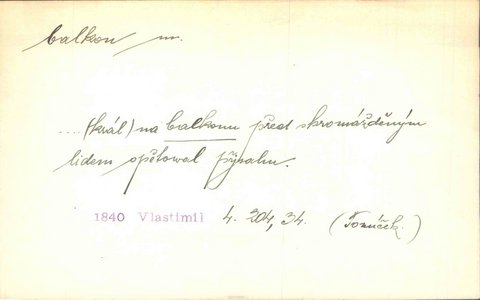 balkon m.
.... (král) na balkonu před shromážděným
lidem opětowal přjsahu.
1840 Vlastimil 4. 204, 34. (Tomíček.)